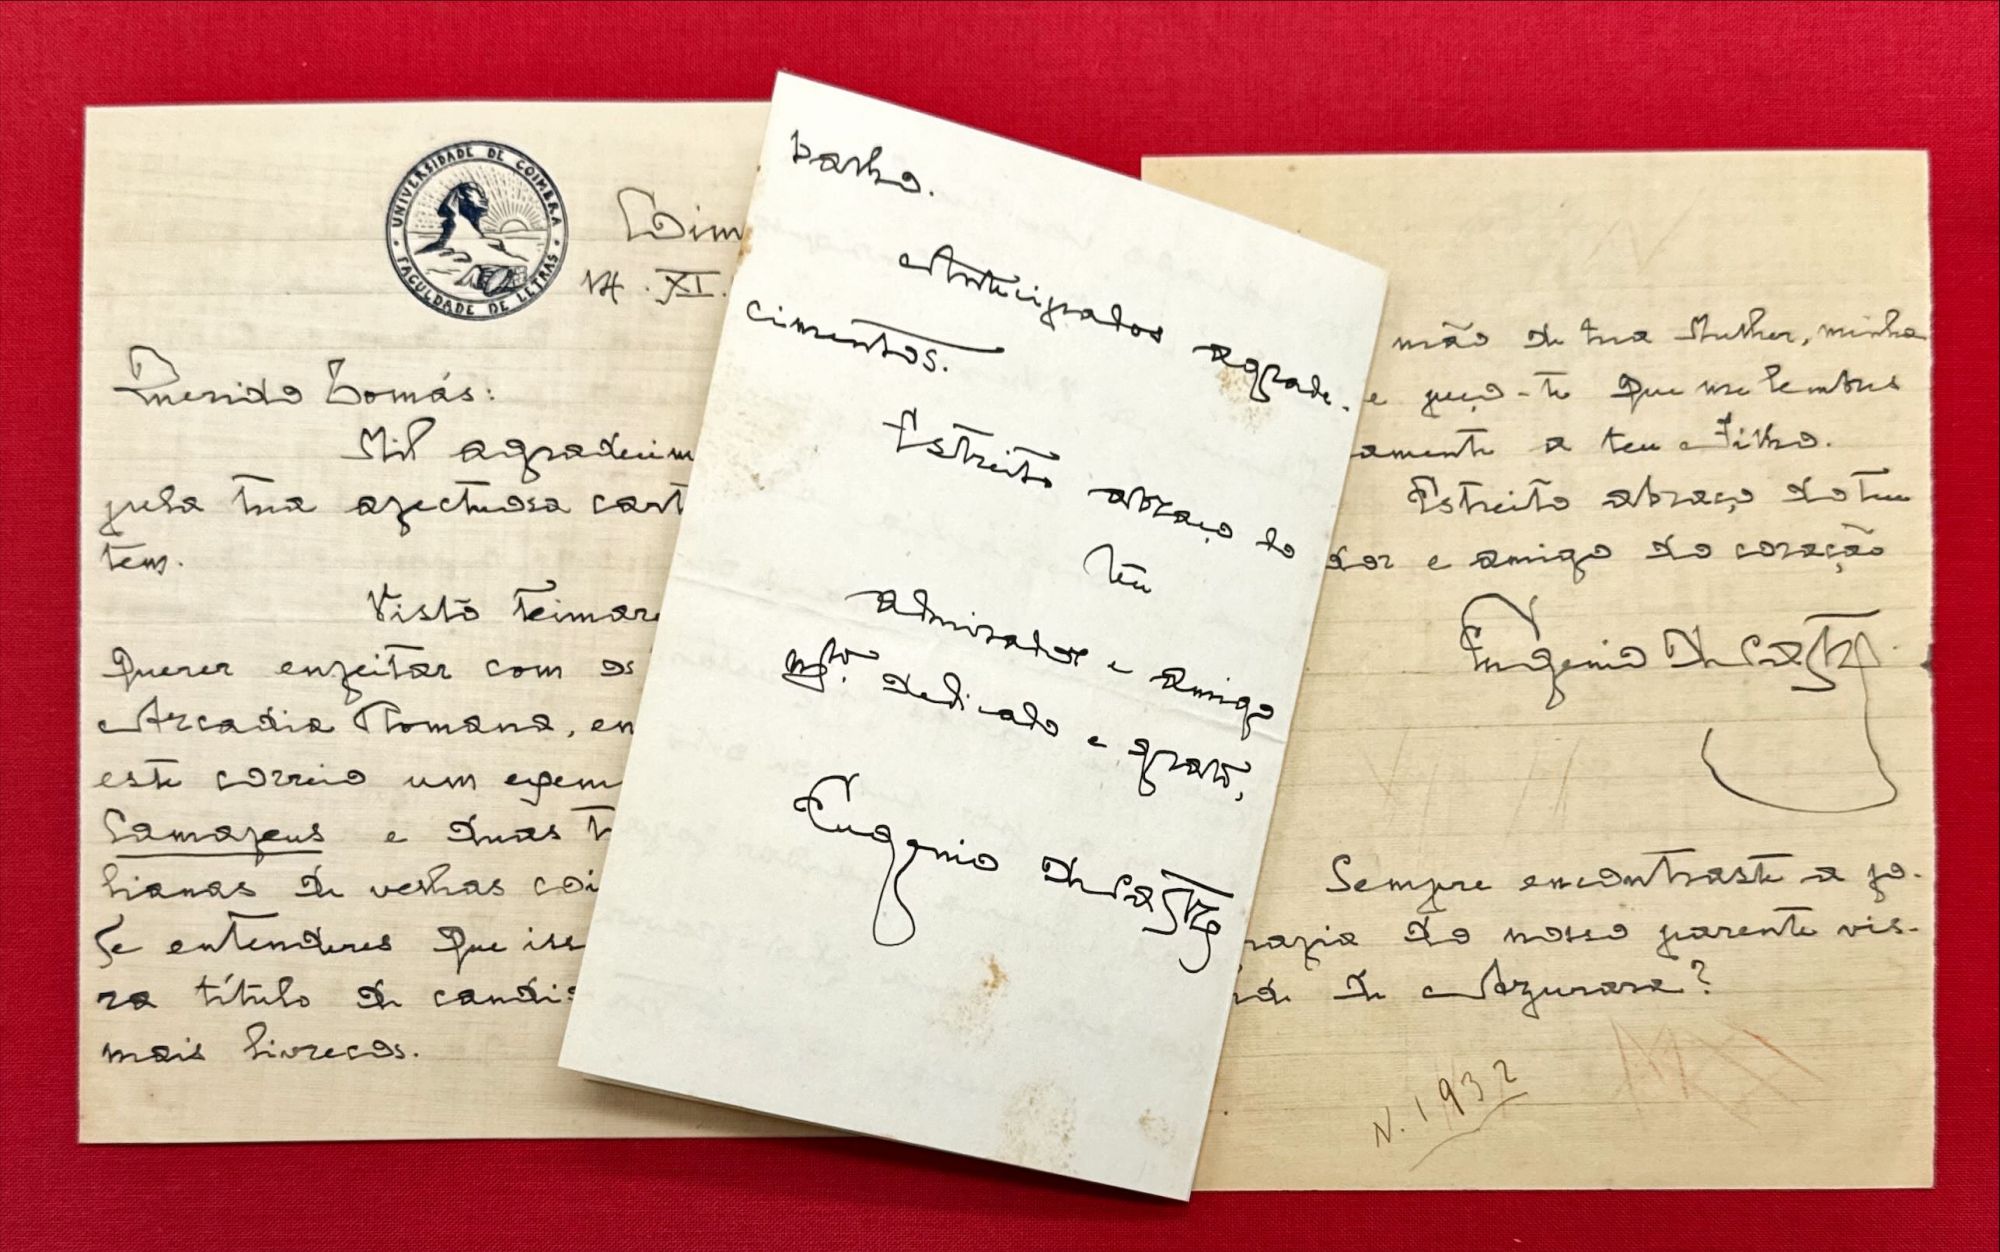 UNIVERSIDADE DE COIMBRA
FACULDADE DE LETRAS
Coim
14. XI.
Querido Tomás:
Mil agradecim
pela tua afectuosa cart
tem.
Visto teimar
querer enfeitar com os
Arcadia Romana, en
este correio um exem
Camafeus e duas t
lianas de velhas coi
Se entenderes que iss
ra título de candi
mais livrecos.
balho.
Antecipados agrade-
cimentos.
Estreito abraço do
teu
admirador e amigo
mto. dedicado e grato,
Eugenio de Castro
mão de tua Mulher, minha
e peço-te que me lembres
amente a teu Filho.
Estreito abraço do teu
dor e amigo do coração
Eugenio de Castro
Sempre encontraste a fo-
rafia do nosso parente vis-
de de Azurara?
N. 1932